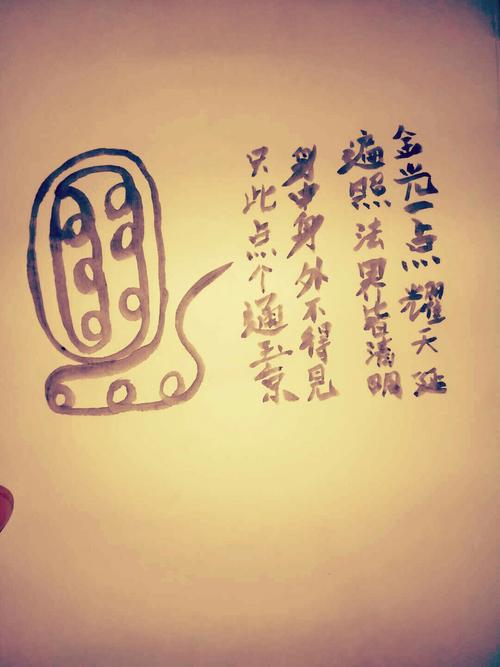 金光一点耀天延
遍照法界皆清明
身中身外不得见
只此点个通玉京